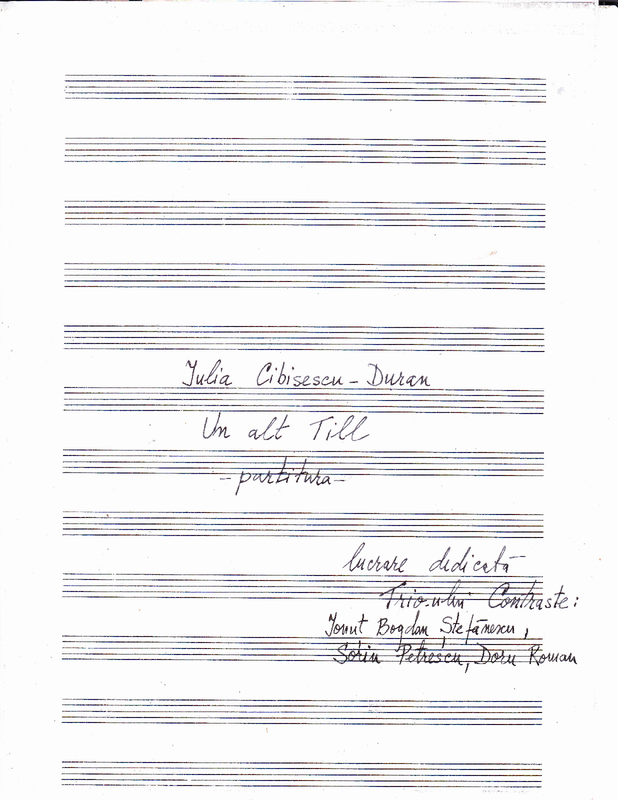 Iulia Cibisescu - Duran
Un alt Till
- partitura -
lucrare dedicată
Trio-ului Contraste:
Ionuț Bogdan Ștefănescu,
Sorin Petrescu, Doru Roman